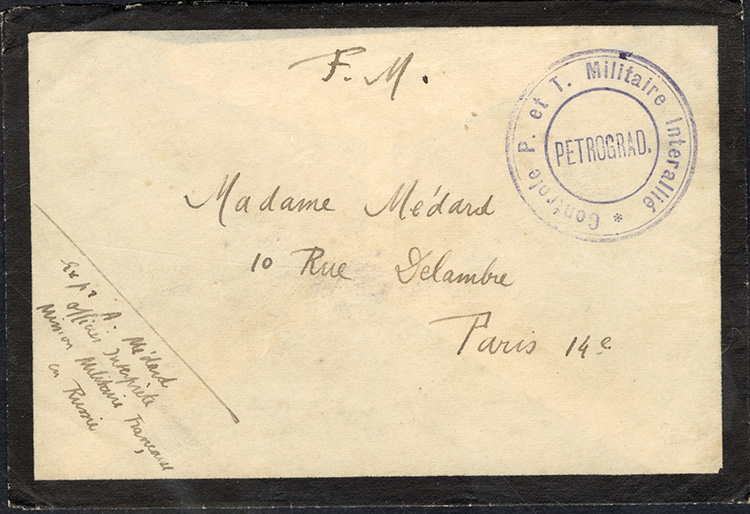 F. M.
Contrôle P. et T. Militaire Interallié *
PETROGRAD.
Madame Médard
10 Rue Delambre
Paris 14e
Expr A. Médard
Officier Interprète
Mission Militaire Française,
en Russie